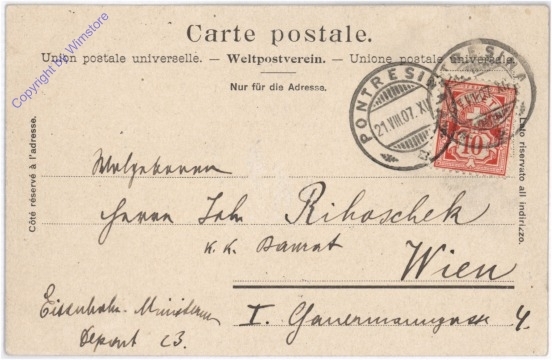 Carte postale.
Union postale universelle. — Weltpostverein. — Unione postale universale.
Nur für die Adresse.
Copyright by Wimstore
Côté réservé à l'adresse.
Lato riservato all indirizzo.
PONTRESINA
21.VIII.07.XI
PONTRESINA
VIII.07.XI
10
Wolgeboren
Herrn Joh. Rihoschek
K. K. Baurat
Wien
Eisenbahn-Ministerium
Depart 23.
I. Gauermanngasse 4.